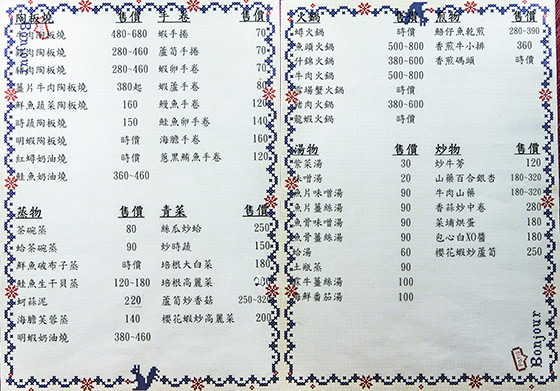 陶板燒 售價
牛肉陶板燒 480-680
雞肉陶板燒 280-460
豬肉陶板燒 280-460
薑片牛肉陶板燒 380起
鮮魚蔬菜陶板燒 160
時蔬陶板燒 150
明蝦陶板燒 時價
紅蟳奶油燒 時價
鮭魚奶油燒 360-460
手卷 售價
蝦手捲 70
蘆筍手捲 70
蝦卵手卷 70
蝦蘆手卷 80
鰻魚手卷 120
鮭魚卵手卷 140
海膽手卷 160
蔥黑鮪魚手卷 120
蒸物 售價
茶碗蒸 80
蛤茶碗蒸 90
鮮魚破布子蒸 時價
鮭魚生干貝蒸 120-180
蚵蒜泥 220
海膽芙蓉蒸 140
明蝦奶油燒 380-460
青菜 售價
絲瓜炒蛤 250
炒時蔬 150
培根大白菜 180
培根高麗菜
蘆筍炒香菇 250-320
櫻花蝦炒高麗菜 200
火鍋 售價
蟳火鍋 時價
魚頭火鍋 500-800
什錦火鍋 380-600
牛肉火鍋 500-800
雪場蟹火鍋 時價
豬肉火鍋 380-600
龍蝦火鍋 時價
煎物 售價
鱙仔魚乾煎 280-390
香煎牛小排 360
香煎碼頭 時價
湯物 售價
紫菜湯 30
味噌湯 20
魚片味噌湯 90
魚片薑絲湯 90
魚骨味噌湯 90
魚骨薑絲湯 90
蛤湯 60
土瓶蒸 90
鮮牛薑絲湯 100
海鮮番茄湯 100
炒物 售價
炒牛蒡 120
山藥百合銀杏 180-320
牛肉山藥 180-320
香蒜炒中卷 280
菜埔烘蛋 180
包心白XO醬 180
櫻花蝦炒蘆筍 250
Bonjour
Bonjour